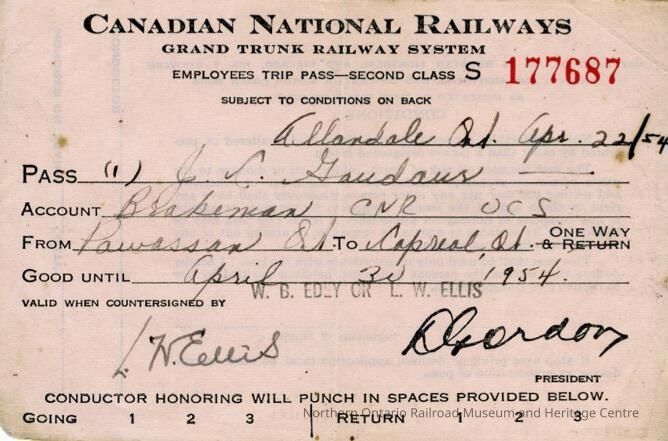 CANADIAN NATIONAL RAILWAYS
GRAND TRUNK RAILWAY SYSTEM
EMPLOYEES TRIP PASS—SECOND CLASS S 177687
SUBJECT TO CONDITIONS ON BACK
Allandale Ont. Apr. 22/54
PASS (1) J. L. Gaudaur
ACCOUNT Brakeman CNR OCS
FROM Powassan Ont. TO Capreol, Ont. ONE WAY & RETURN
GOOD UNTIL April 30 1954.
W. B. EDEY OR L. W. ELLIS
VALID WHEN COUNTERSIGNED BY
L. W. Ellis D Gordon
PRESIDENT
CONDUCTOR HONORING WILL PUNCH IN SPACES PROVIDED BELOW.
Northern Ontario Railroad Museum and Heritage Centre
GOING 1 2 3 RETURN 1 2 3